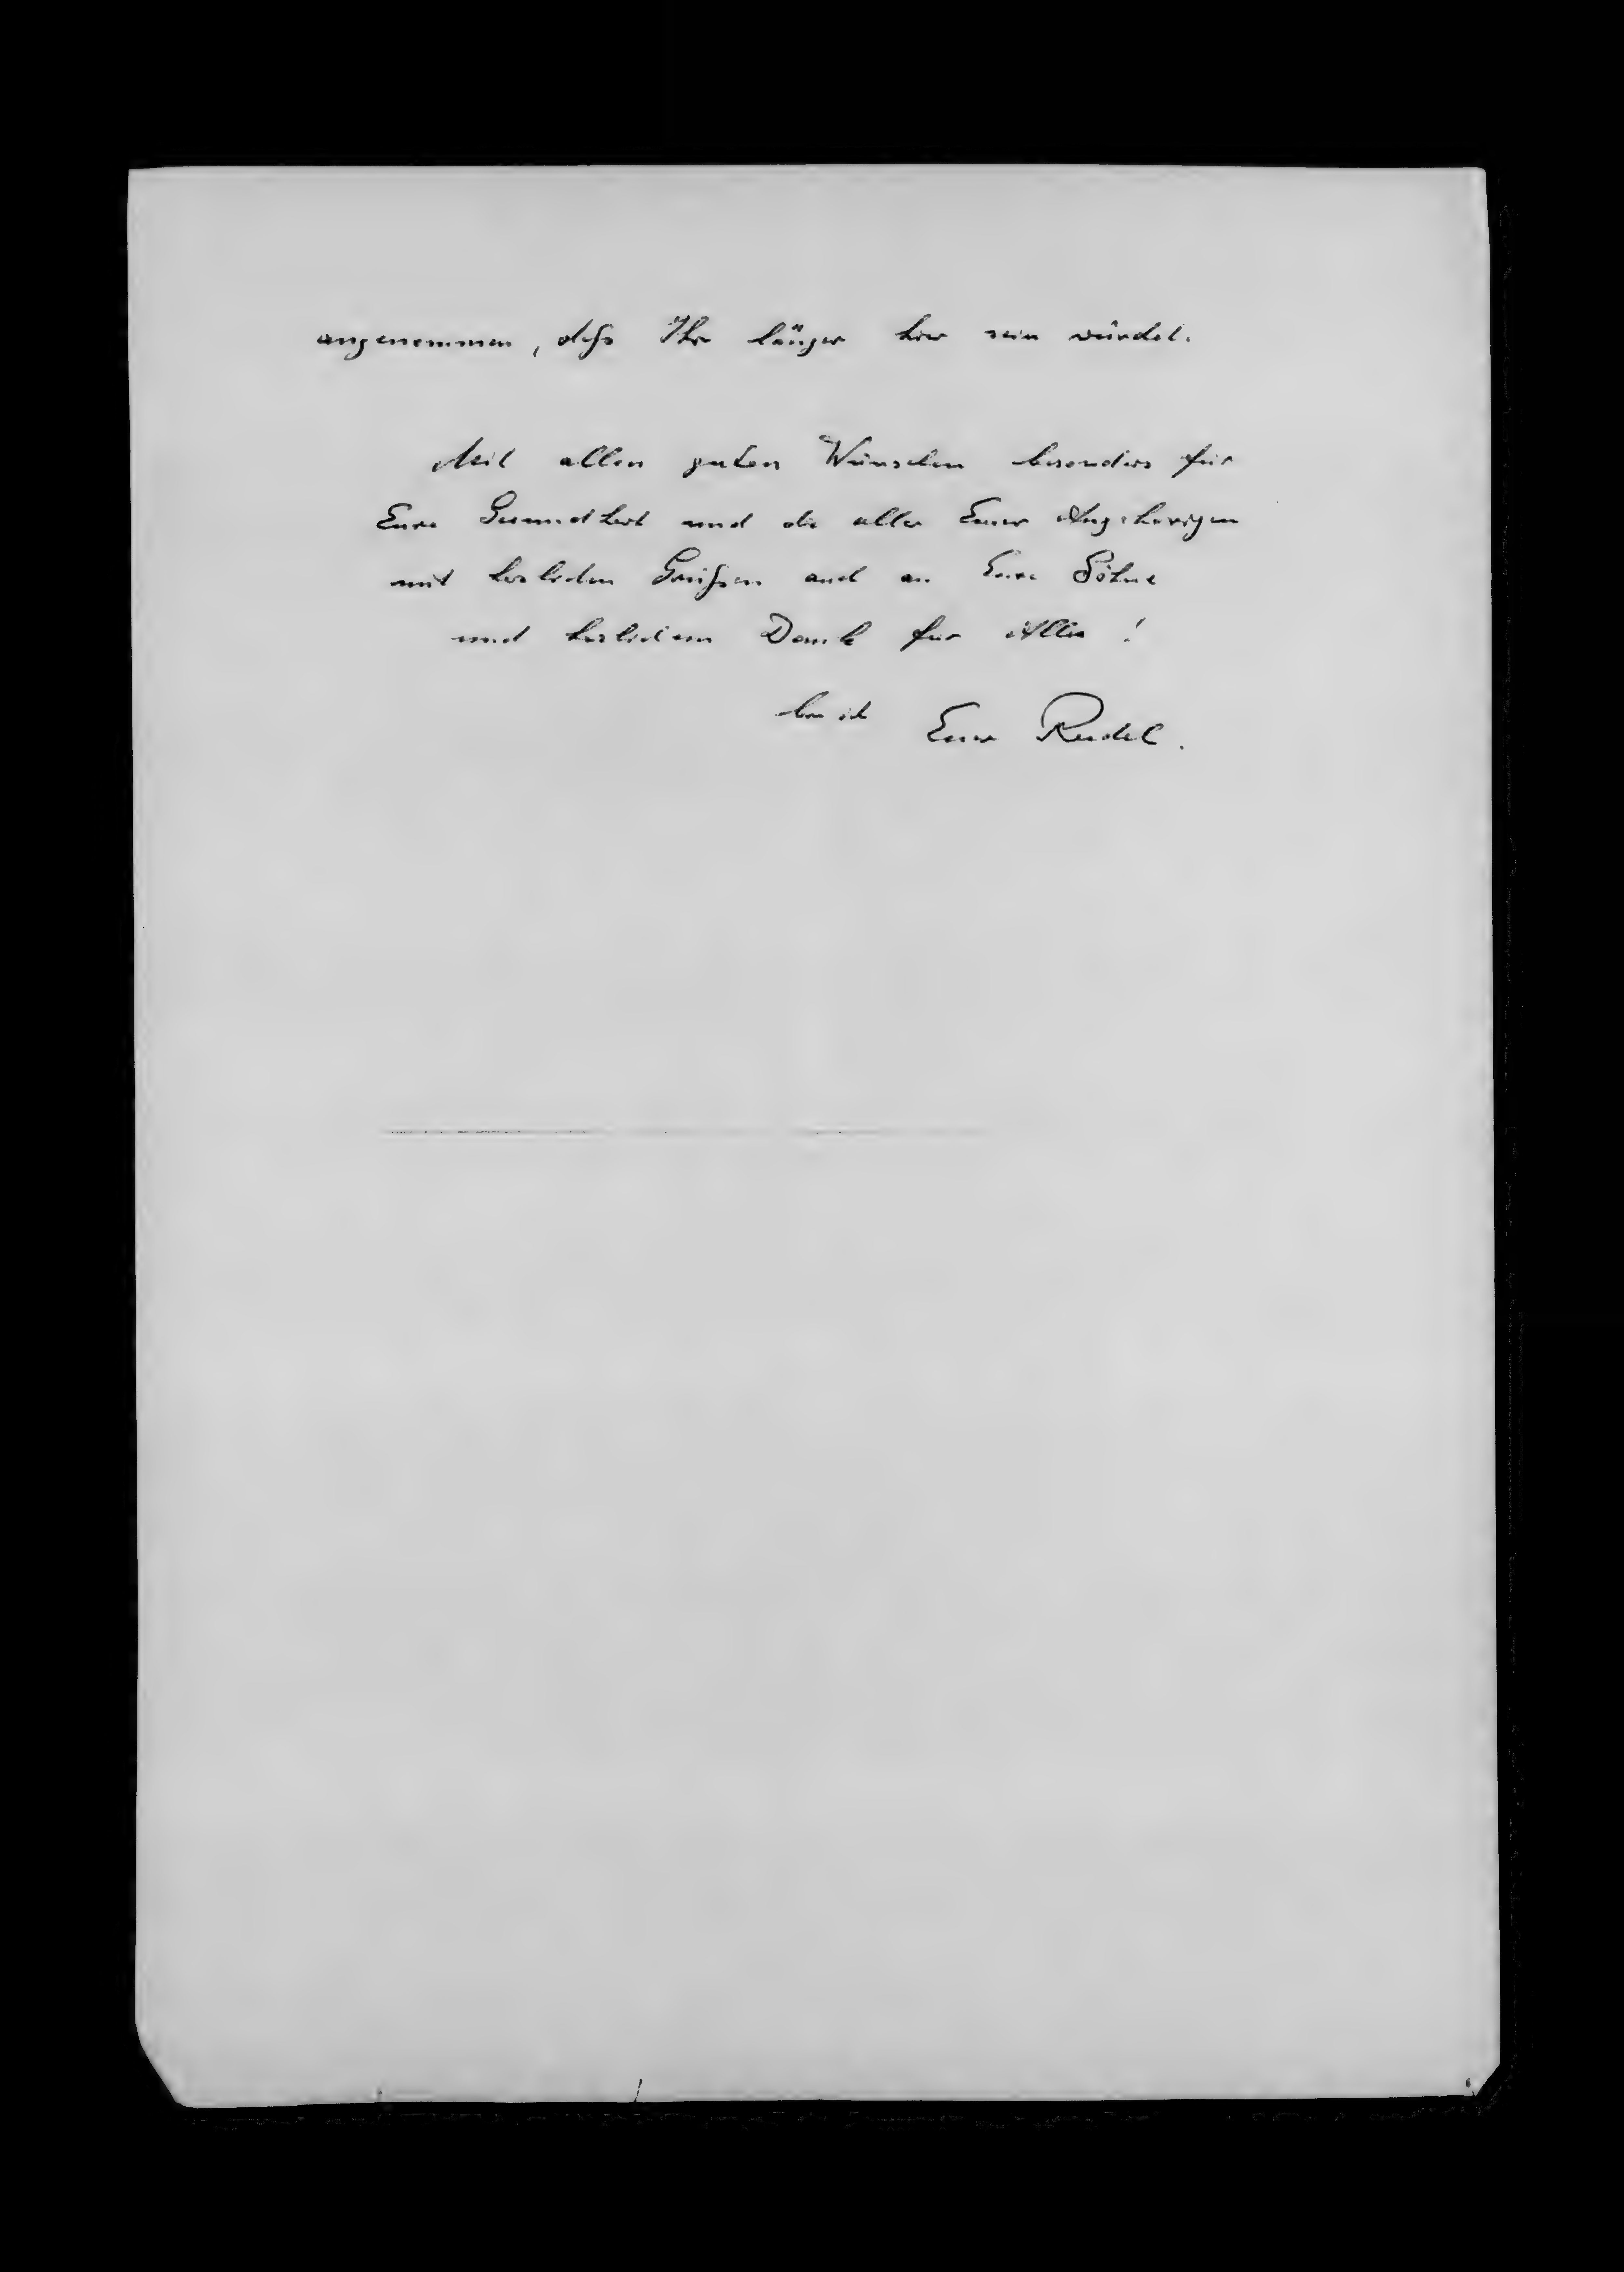 angenommen, daß Ihr länger hier sein würdet.
Mit allen guten Wünschen besonders für
Eure Gesundheit und die aller Eurer Angehörigen
mit herzlichen Grüßen auch an Eure Söhne
und herzlichem Dank für Alles!
bin ich Euer Rudel.